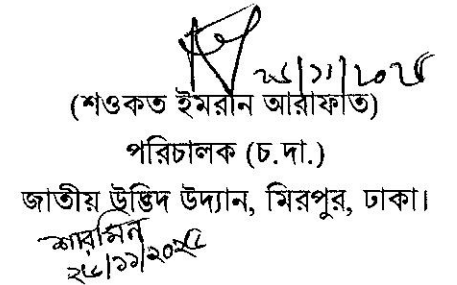 ২৫/১১/২০২৫
(শওকত ইমরান আরাফাত)
পরিচালক (চ.দা.)
জাতীয় উদ্ভিদ উদ্যান, মিরপুর, ঢাকা।
শারমিন
২৫/১১/২০২৫